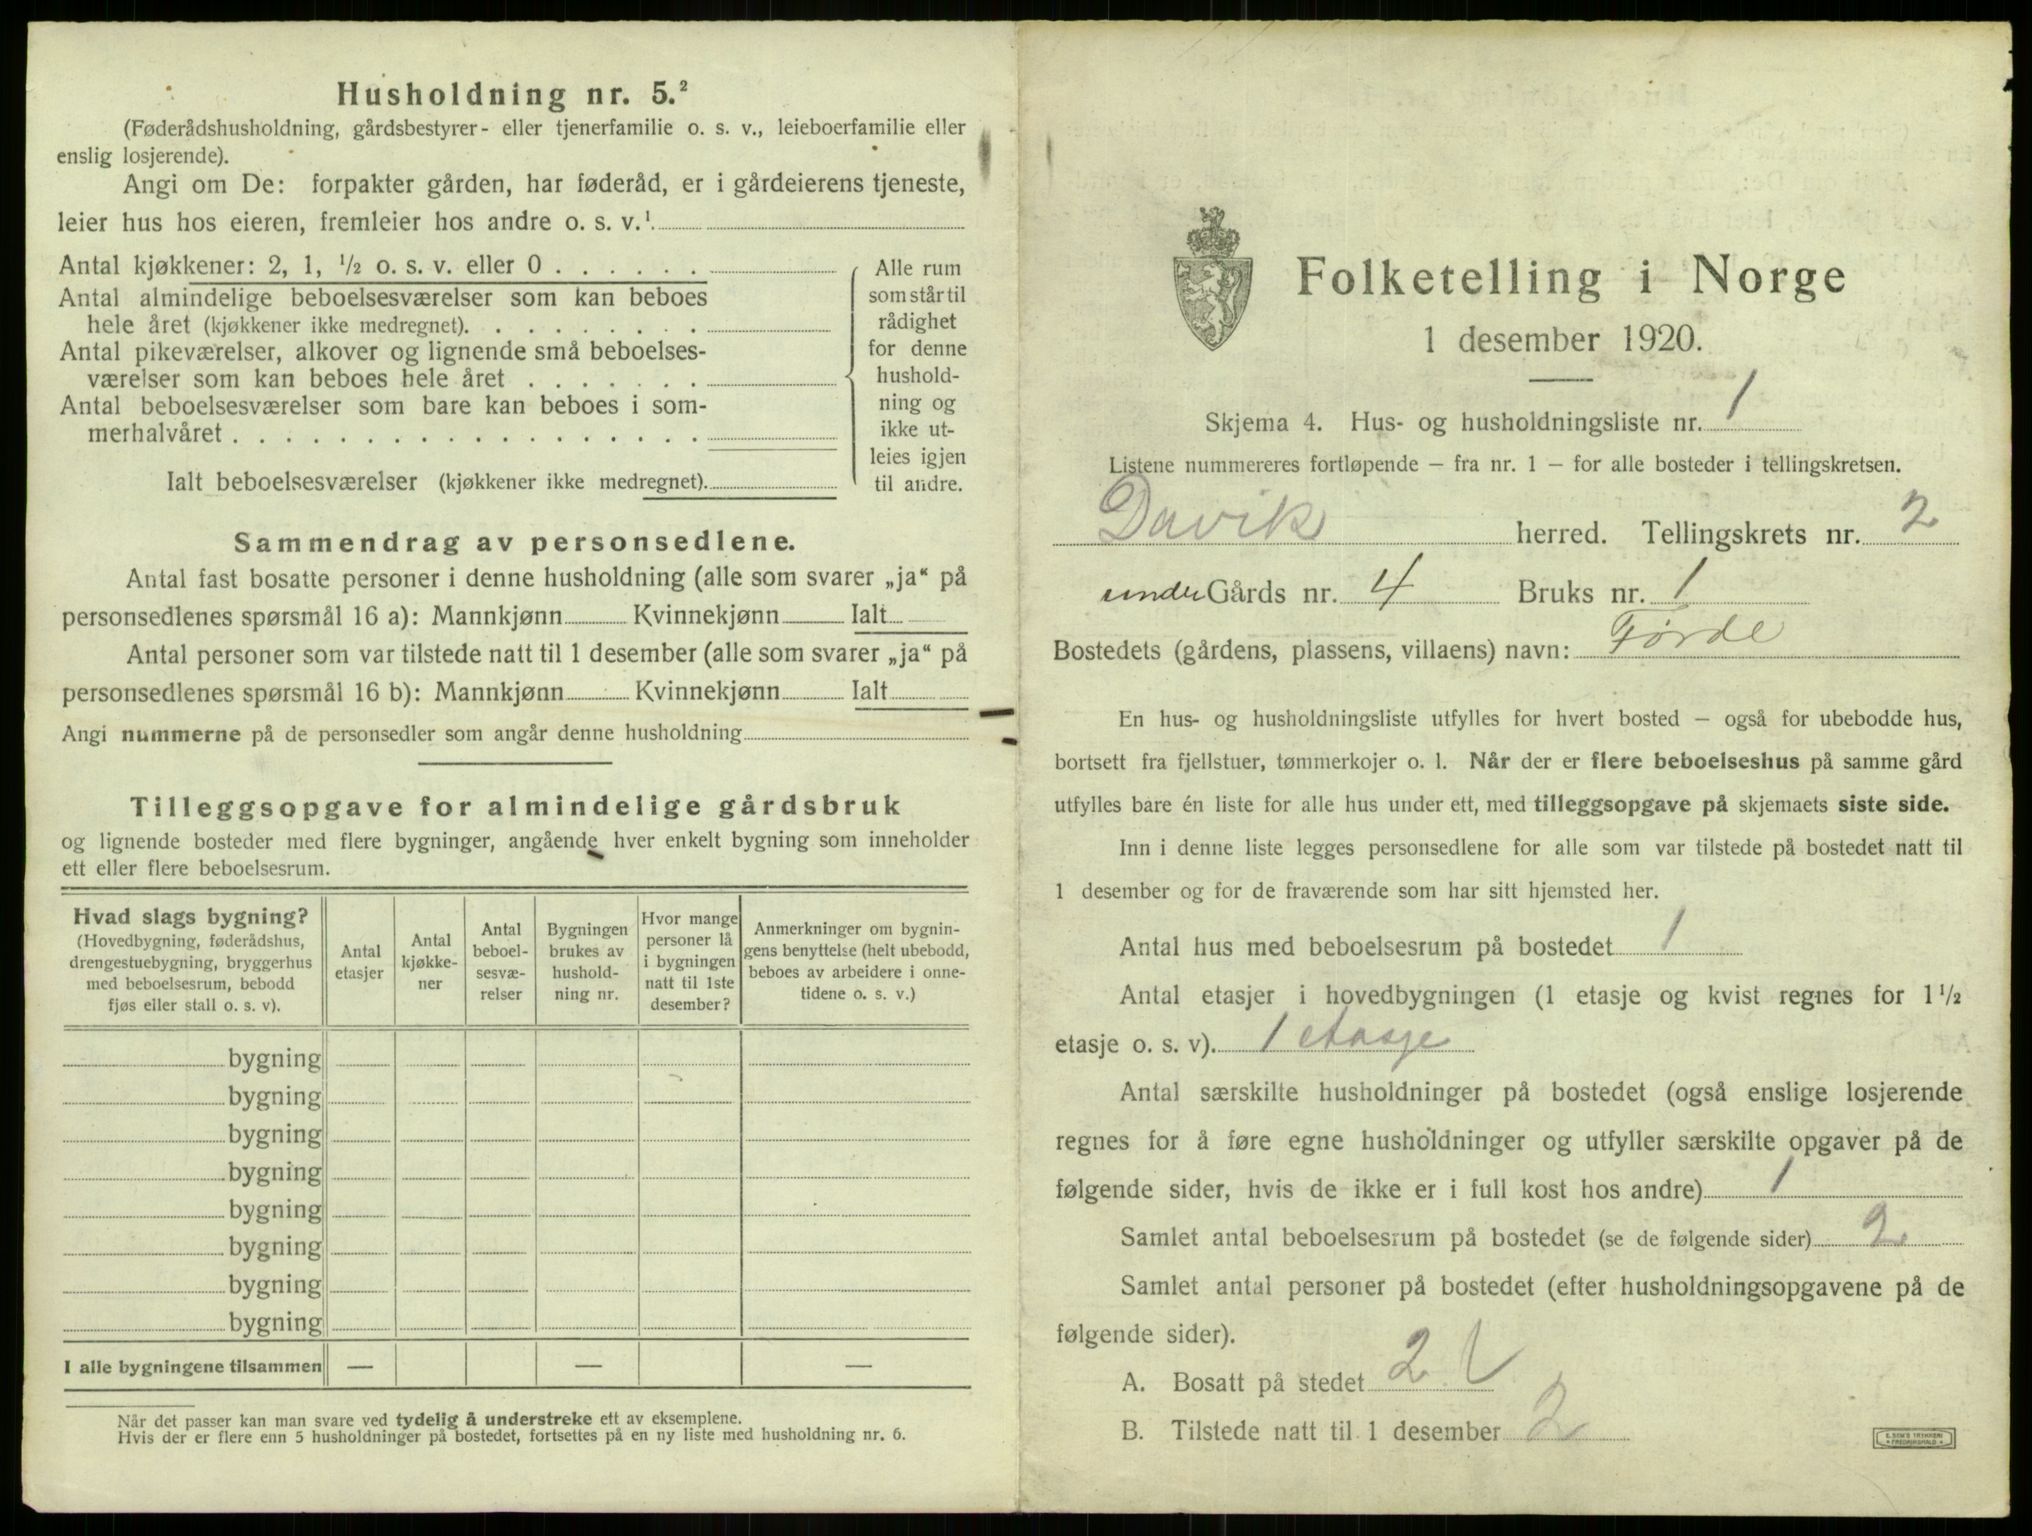 Husholdning nr. 5.²
(Føderådshusholdning, gårdsbestyrer- eller tjenerfamilie o. s. v., leieboerfamilie eller
enslig losjerende).
Angi om De: forpakter gården, har føderåd, er i gårdeierens tjeneste,
leier hus hos eieren, fremleier hos andre o. s. v.¹
Antal kjøkkener: 2, 1, ½ o. s. v. eller 0 . . . . . .
Antal almindelige beboelsesværelser som kan beboes
hele året (kjøkkener ikke medregnet). . . . . . . . .
Antal pikeværelser, alkover og lignende små beboelses-
værelser som kan beboes hele året . . . . . . .
Antal beboelsesværelser som bare kan beboes i som-
merhalvåret . . . . . . . . . . . . . . . . . .
Ialt beboelsesværelser (kjøkkener ikke medregnet).
Alle rum
som står til
rådighet
for denne
hushold-
ning og
ikke ut-
leies igjen
til andre.
Sammendrag av personsedlene.
Antal fast bosatte personer i denne husholdning (alle som svarer „ja“ på
personsedlenes spørsmål 16 a): Mannkjønn Kvinnekjønn Ialt
Antal personer som var tilstede natt til 1 desember (alle som svarer „ja“ på
personsedlenes spørsmål 16 b): Mannkjønn Kvinnekjønn Ialt
Angi nummerne på de personsedler som angår denne husholdning
Tilleggsopgave for almindelige gårdsbruk
og lignende bosteder med flere bygninger, angående hver enkelt bygning som inneholder
ett eller flere beboelsesrum.
Hvad slags bygning?
(Hovedbygning, føderådshus,
drengestuebygning, bryggerhus
med beboelsesrum, bebodd
fjøs eller stall o. s. v).
Antal
etasjer
Antal
kjøkke-
ner
Antal
beboel-
sesvæ-
relser
Bygningen
brukes av
hushold-
ning nr.
Hvor mange
personer lå
i bygningen
natt til 1ste
desember?
Anmerkninger om bygnin-
gens benyttelse (helt ubebodd,
beboes av arbeidere i onne-
tidene o. s. v.)
bygning
bygning
bygning
bygning
bygning
bygning
bygning
bygning
I alle bygningene tilsammen — — —
Når det passer kan man svare ved tydelig å understreke ett av eksemplene.
Hvis der er flere enn 5 husholdninger på bostedet, fortsettes på en ny liste med husholdning nr. 6.
Folketelling i Norge
1 desember 1920.
Skjema 4. Hus- og husholdningsliste nr. 1
Listene nummereres fortløpende – fra nr. 1 – for alle bosteder i tellingskretsen.
Davik herred. Tellingskrets nr. 2
under Gårds nr. 4 Bruks nr. 1
Bostedets (gårdens, plassens, villaens) navn: Førde
En hus- og husholdningsliste utfylles for hvert bosted – også for ubebodde hus,
bortsett fra fjellstuer, tømmerkojer o. l. Når der er flere beboelseshus på samme gård
utfylles bare én liste for alle hus under ett, med tilleggsopgave på skjemaets siste side.
Inn i denne liste legges personsedlene for alle som var tilstede på bostedet natt til
1 desember og for de fraværende som har sitt hjemsted her.
Antal hus med beboelsesrum på bostedet 1
Antal etasjer i hovedbygningen (1 etasje og kvist regnes for 1½
etasje o. s. v). 1 etasje
Antal særskilte husholdninger på bostedet (også enslige losjerende
regnes for å føre egne husholdninger og utfyller særskilte opgaver på de
følgende sider, hvis de ikke er i full kost hos andre) 1
Samlet antal beboelsesrum på bostedet (se de følgende sider) 2
Samlet antal personer på bostedet (efter husholdningsopgavene på de
følgende sider).
A. Bosatt på stedet 2
B. Tilstede natt til 1 desember 2